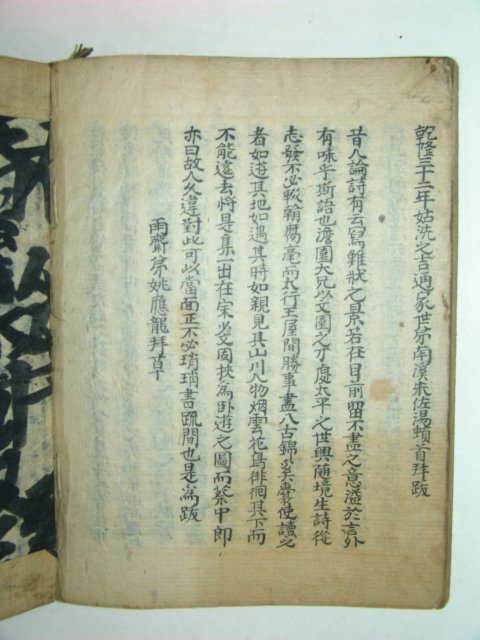 乾隆三十二年姑洗之吉通家世弟南溪朱佐湯頓首拜跋
昔人論詩有云寫難狀之景若在目前留不盡之意溢於言外
有味乎斯語也澹園大兄以文園之才處太平之世興隨境生詩從
志發不必綴翰膓毫而太行王屋間勝事盡入古錦奚囊使讀之
者如遊其地如遇其時如親見其山川人物烟雲花鳥徘徊其下而
不能遠去將是集一出在宋必文周挾為卧遊之圖而蔡中郎
亦曰故人久違對此可以當面正不必瑣瑣書䟽間也是為跋
雨齋弟姚應龍拜草